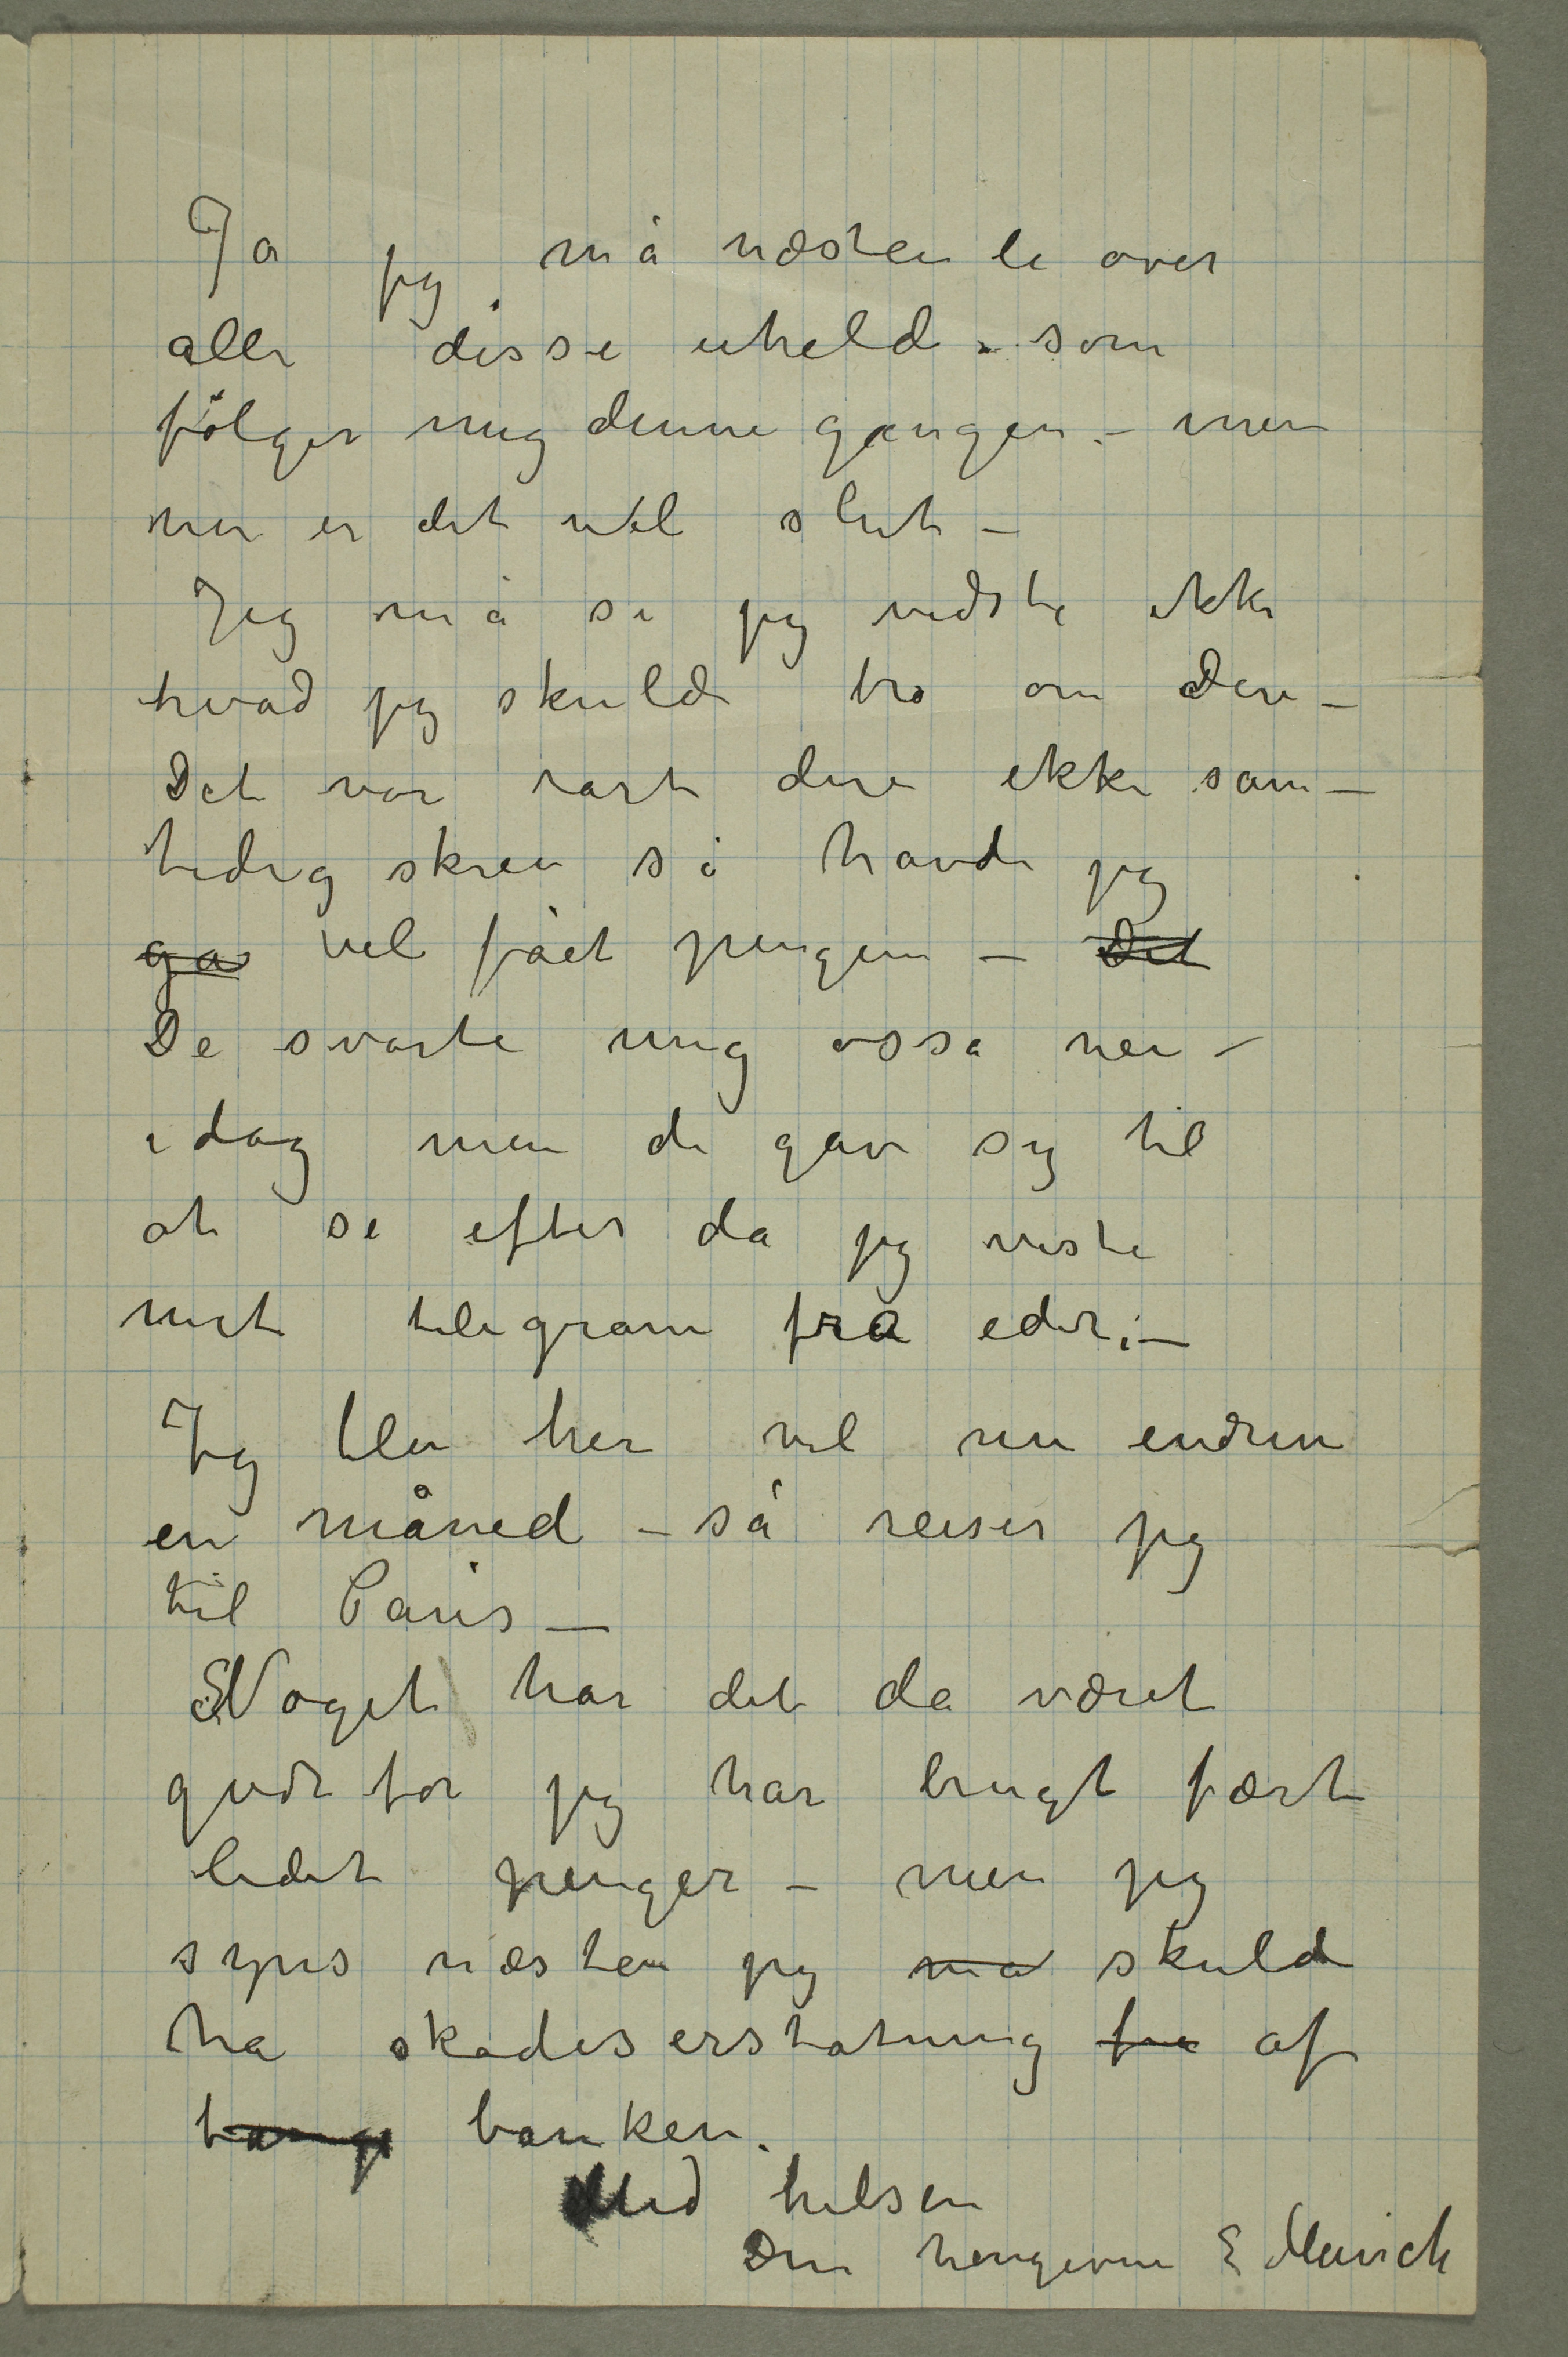 Ja jeg må næsten le over
alle disse uheld som
følger mig denne gangen – men
nu er det vel slut –
Jeg må si jeg vidste ikke
hvad jeg skulde tro om den –
Det var rart dere ikke sam–
tidig skrev så havde jeg
ga vel fået pengene – Det
De svarte mig osså nei –
idag men de gav sig til
at se efter da jeg viste
mit telegram fra eder. –
Jeg blir her vel nu endnu
en måned – så reiser jeg
til Paris –
Noget har det da været
godt for jeg har brugt svært
lidet penger – men jeg
syns næsten jeg må skulde
ha skadeserstatning fra af
banken.
Med hilsen
Din hengivne E Munch